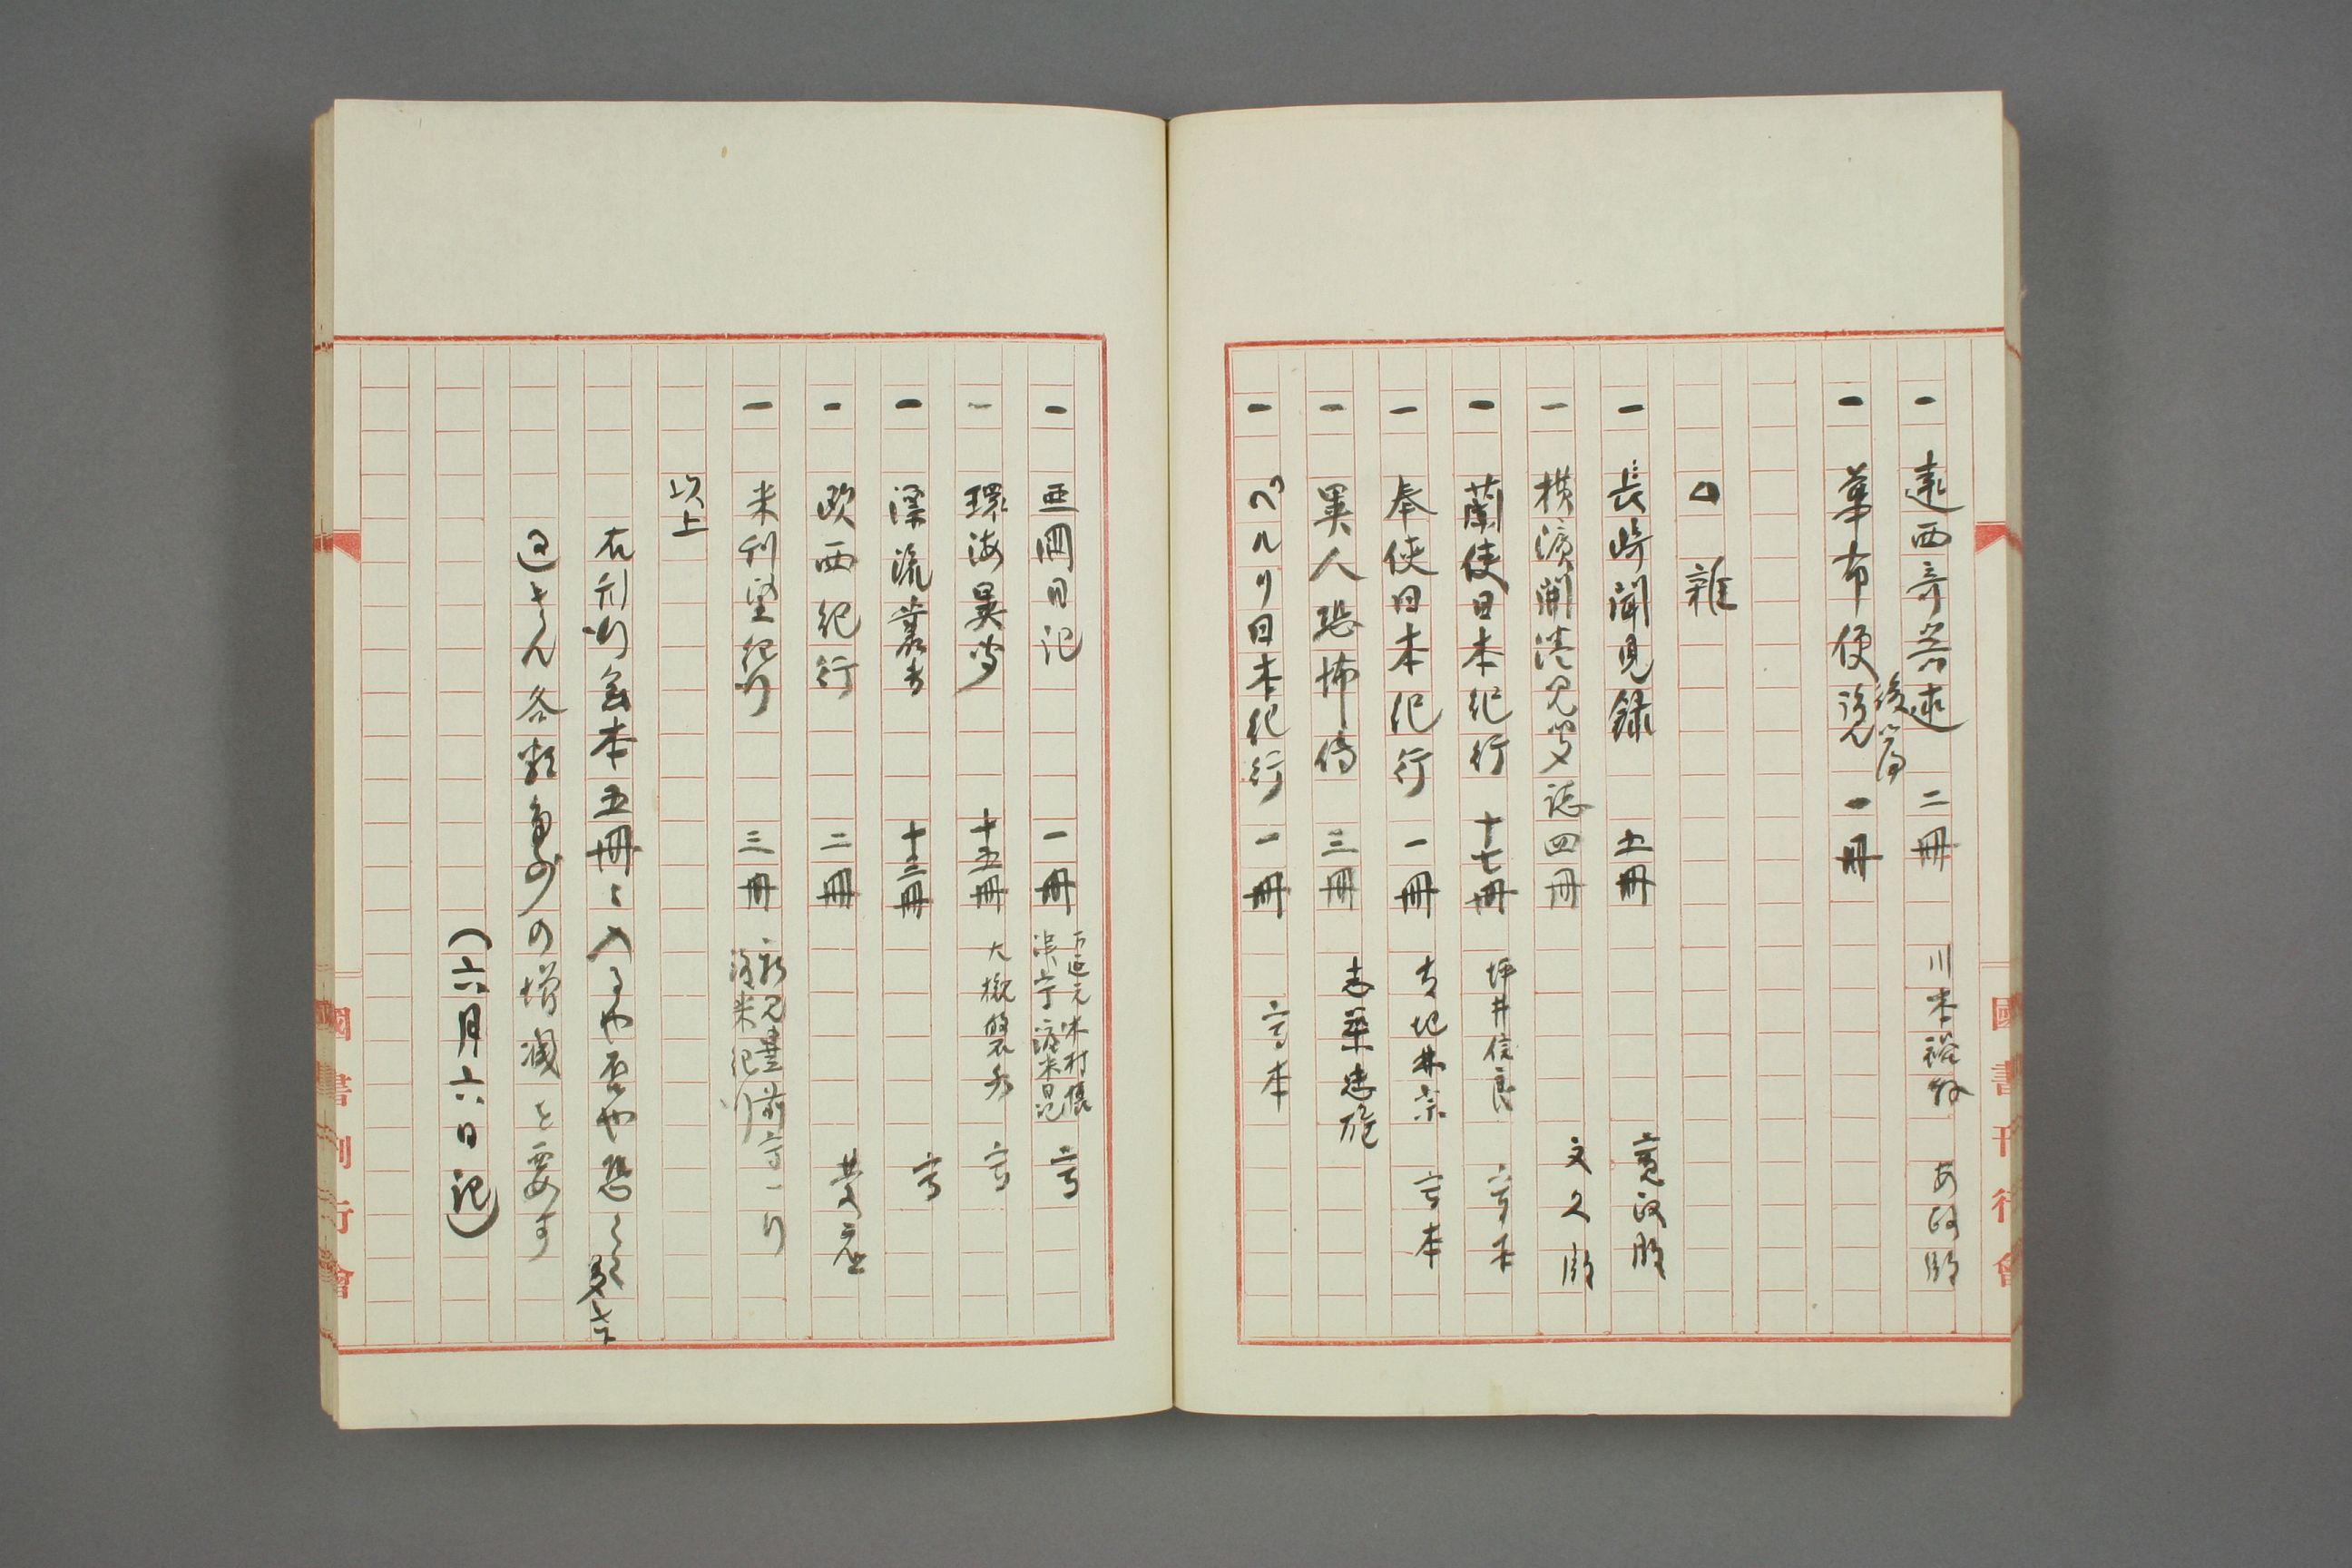 一 遠西奇器述 二冊 川本裕 あ政版
一 革布便覧 後篇 一冊
〇 雑
一 長崎聞見録 五冊 寛政版
一 横濱開港見聞誌 四冊 文久版
一 蘭使日本紀行 十七冊 坪井信良 写本
一 奉使日本紀行 一冊 青地林宗 写本
一 異人恐怖傳 三冊 志築忠雄
一 ペルリ日本紀行 一冊 写本
一 亜国日記 一冊 渡米日記 写
一 環海異聞 十五冊 大槻磐水 写
一 漂流叢書 十三冊 写
一 欧西紀行 二冊
一 米利堅紀行 三冊 新見豊前守 渡米紀行
以上
右刊行会本五冊に入るや否や
各類多少の増減を要す
(六月六日記)
國書刊行會
國書刊行會